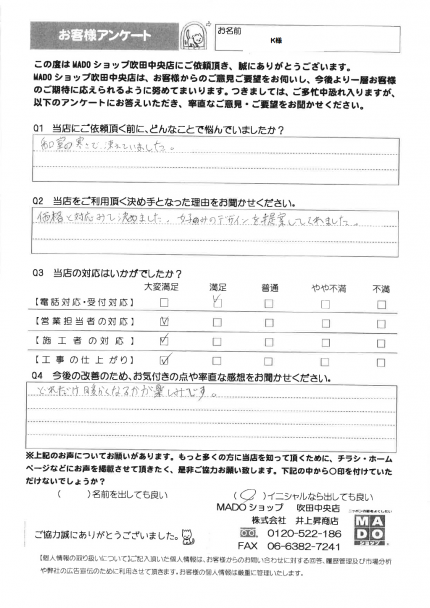 お客様アンケート
お名前
K様
この度は MADO ショップ吹田中央店にご依頼頂き、誠にありがとうございます。
MADO ショップ吹田中央店は、お客様からのご意見ご要望をお伺いし、今後より一層お客様
のご期待に応えられるように努めてまいります。つきましては、ご多忙中恐れ入りますが、
以下のアンケートにお答えいただき、率直なご意見・ご要望をお聞かせください。
Q1 当店にご依頼頂く前に、どんなことで悩んでいましたか?
和室の寒さで困っていました。
Q2 当店をご利用頂く決め手となった理由をお聞かせください。
価格と対応みて決めました。好みのデザインを提案してくれました。
Q3 当店の対応はいかがでしたか?
大変満足 満足 普通 やや不満 不満
【電話対応・受付対応】 □ ☑ □ □ □
【営業担当者の対応】 ☑ □ □ □ □
【施工者の対応】 ☑ □ □ □ □
【工事の仕上がり】 ☑ □ □ □ □
Q4 今後の改善のため、お気付きの点や率直な感想をお聞かせください。
どれだけ暖かくなるかが楽しみです。
※上記のお声についてお願いがあります。もっと多くの方に当店を知って頂くために、チラシ・ホーム
ページなどにお声を掲載させて頂きたく、是非ご協力お願い致します。下記の中から〇印を付けていた
だけないでしょうか?
( )名前を出しても良い (○)イニシャルなら出しても良い
MADO ショップ 吹田中央店
株式会社 井上昇商店
0120-522-186
FAX 06-6382-7241
MADO
ショップ
ご協力誠にありがとうございます。
【個人情報の取り扱いについて】ご記入頂いた個人情報は、お客様からのお問い合わせに対する回答、履歴管理及び市場分析
や弊社の広告宣伝のために利用させて頂きます。お客様の個人情報は厳重に管理いたします。